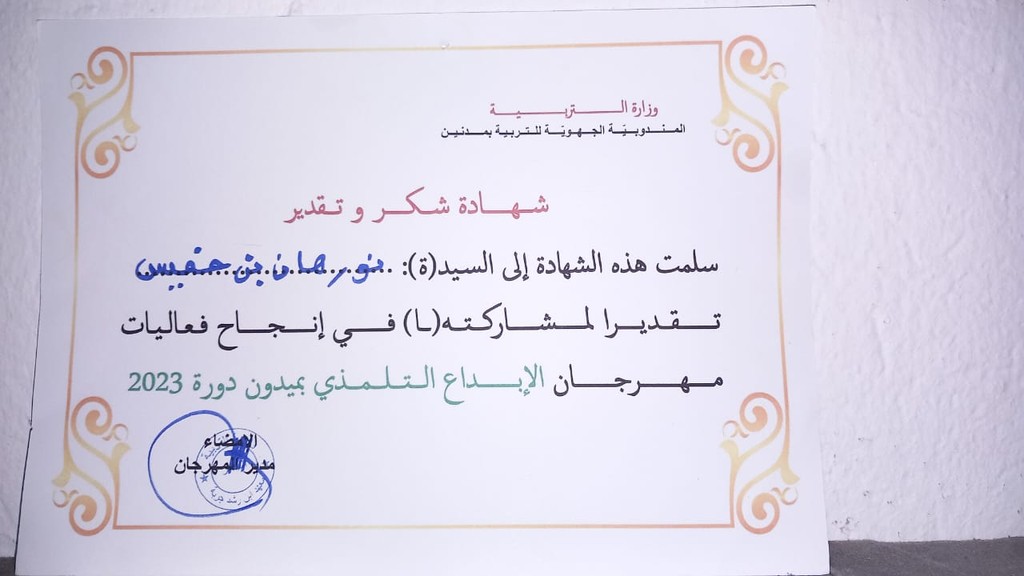 وزارة التربية
المندوبيّة الجهويّة للتربية بمدنين
شهادة شكر و تقدير
سلمت هذه الشهادة إلى السيد(ة): نورهان بن خميس
تقديرا لمشاركته(ا) في إنجاح فعاليات
مهرجان الإبداع التلمذي بميدون دورة 2023
الإمضاء
مدير المهرجان
معهد ابن رشد جربة